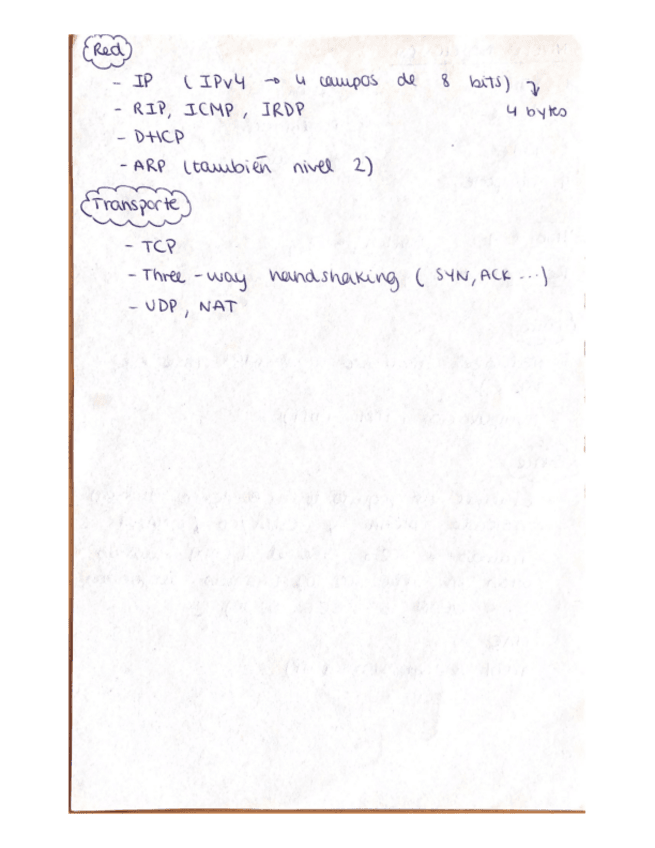 Red
- IP (IPv4 → 4 campos de 8 bits) ↴
- RIP, ICMP, IRDP 4 bytes
- DHCP
- ARP (también nivel 2)
Transporte
- TCP
- Three-way handshaking (SYN, ACK...)
- UDP, NAT